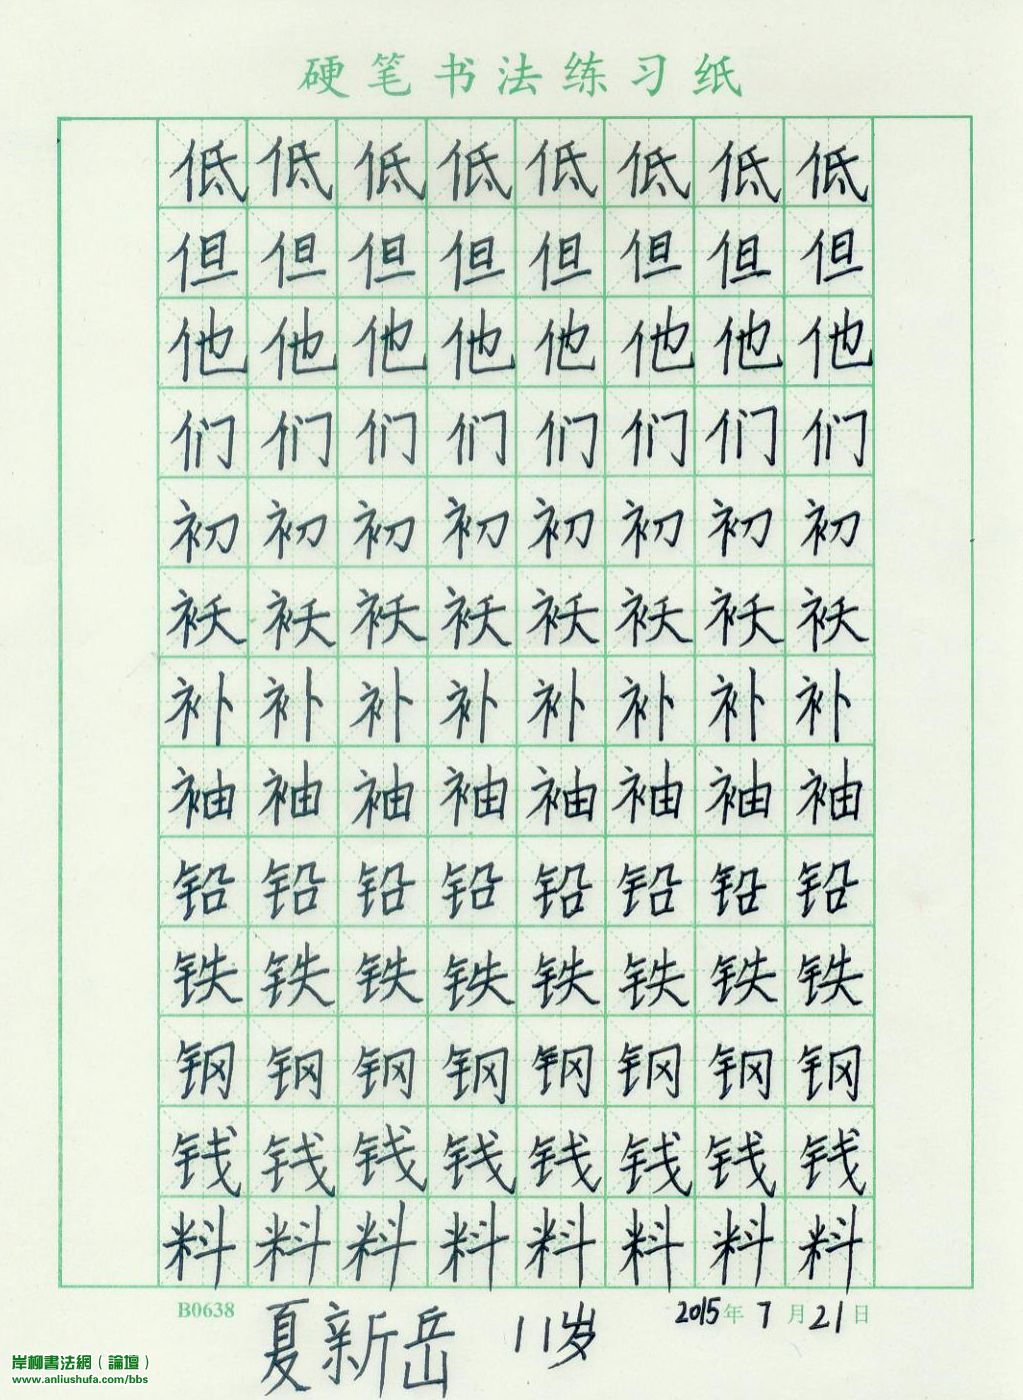 硬笔书法练习纸
低低低低低低低低
但但但但但但但但
他他他他他他他他
们们们们们们们们
初初初初初初初初
袄袄袄袄袄袄袄袄
补补补补补补补补
袖袖袖袖袖袖袖袖
铅铅铅铅铅铅铅铅
铁铁铁铁铁铁铁铁
钢钢钢钢钢钢钢钢
钱钱钱钱钱钱钱钱
料料料料料料料料
B0638 夏新岳 11岁 2015年7月21日
岸柳書法網（論壇）
www.anliushufa.com/bbs